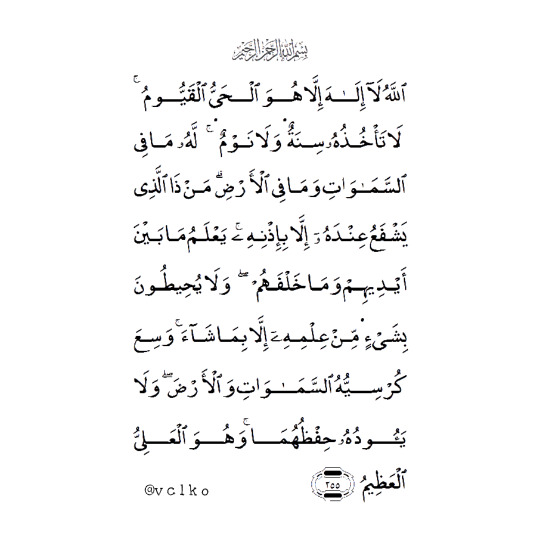 بِسْمِ ٱللَّهِ ٱلرَّحْمَٰنِ ٱلرَّحِيمِ
ٱللَّهُ لَآ إِلَـٰهَ إِلَّا هُـوَ ٱلْـحَىُّ ٱلْقَيُّـومُ ۚ
لَا تَأْخُـذُهُۥ سِـنَةٌ وَلَا نَـوْمٌ ۚ لَّهُۥ مَـا فِى
ٱلسَّمَـٰوَاتِ وَمَـا فِى ٱلْأَرْضِ ۗ مَـنْ ذَا ٱلَّـذِى
يَـشْفَعُ عِنْـدَهُۥٓ إِلَّا بِـإِذْنِـهِۦ ۚ يَعْلَـمُ مَـا بَيْـنَ
أَيْـدِيهِـمْ وَمَـا خَلْفَـهُمْ ۖ وَلَا يُـحِيطُـونَ
بِشَىْءٍ مِّـنْ عِلْمِـهِۦٓ إِلَّا بِمَـا شَـآءَ ۚ وَسِـعَ
كُرْسِيُّهُ ٱلسَّمَـٰوَاتِ وَٱلْأَرْضَ ۖ وَلَا
يَـُٔـودُهُۥ حِفْظُهُمَـا ۚ وَهُـوَ ٱلْعَـلِىُّ
ٱلْعَظِـيمُ ٢٥٥
@vclko